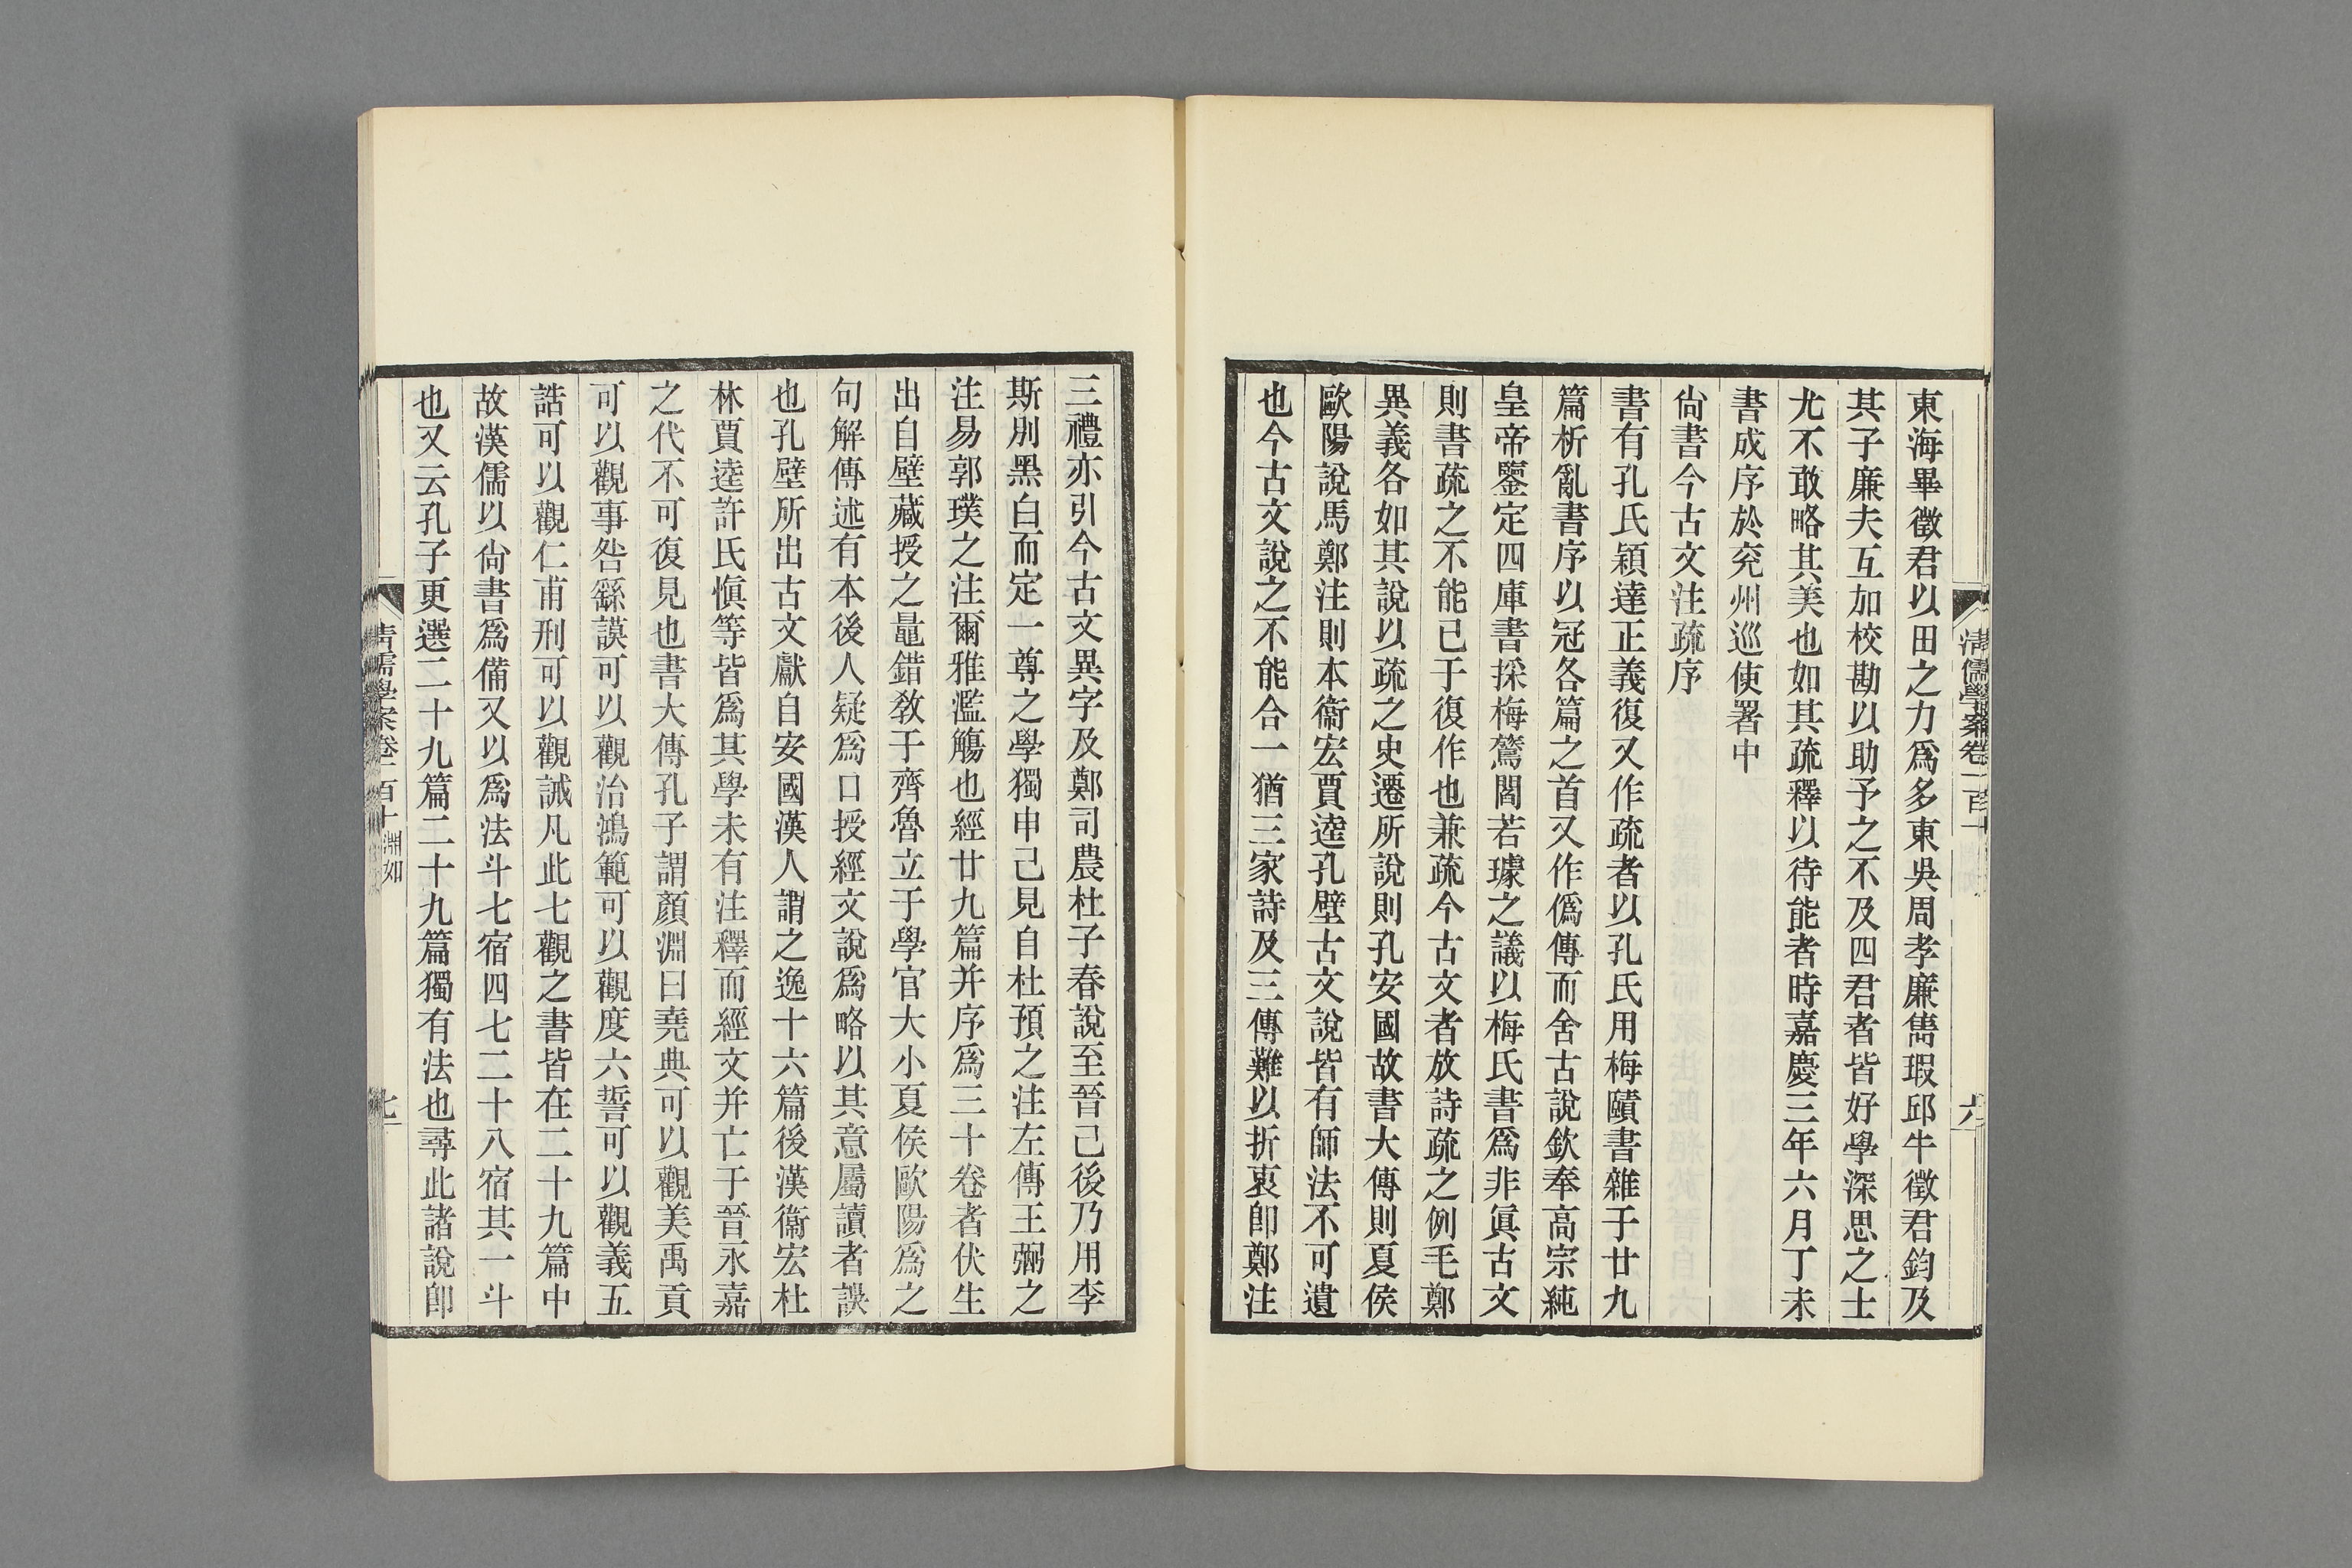 東海畢徵君以田之力爲多東吳周孝廉雋瑕邱牛徵君鈞及
其子廉夫互加校勘以助予之不及四君者皆好學深思之士
尤不敢略其美也如其疏釋以待能者時嘉慶三年六月丁未
書成序於兖州巡使署中
尙書今古文注疏序
書有孔氏穎達正義復又作疏者以孔氏用梅賾書雜于廿九
篇析亂書序以冠各篇之首又作僞傳而舍古說欽奉高宗純
皇帝鑒定四庫書採梅鷟閻若璩之議以梅氏書爲非眞古文
則書疏之不能已于復作也兼疏今古文者放詩疏之例毛鄭
異義各如其說以疏之史遷所說則孔安國故書大傳則夏侯
歐陽說馬鄭注則本衞宏賈逵孔壁古文說皆有師法不可遺
也今古文說之不能合一猶三家詩及三傳難以折衷卽鄭注
清儒學案卷一百十
六
三禮亦引今古文異字及鄭司農杜子春說至晉已後乃用李
斯別黑白而定一尊之學獨申己見自杜預之注左傳王弼之
注易郭璞之注爾雅濫觴也經廿九篇并序爲三十卷者伏生
出自壁藏授之鼂錯敎于齊魯立于學官大小夏侯歐陽爲之
句解傳述有本後人疑爲口授經文說爲略以其意屬讀者誤
也孔壁所出古文獻自安國漢人謂之逸十六篇後漢衞宏杜
林賈逵許氏愼等皆爲其學未有注釋而經文并亡于晉永嘉
之代不可復見也書大傳孔子謂顏淵曰堯典可以觀美禹貢
可以觀事咎繇謨可以觀治鴻範可以觀度六誓可以觀義五
誥可以觀仁甫刑可以觀誡凡此七觀之書皆在二十九篇中
故漢儒以尙書爲備又以爲法斗七宿四七二十八宿其一斗
也又云孔子更選二十九篇二十九篇獨有法也尋此諸說卽
清儒學案卷一百十 淵如
七